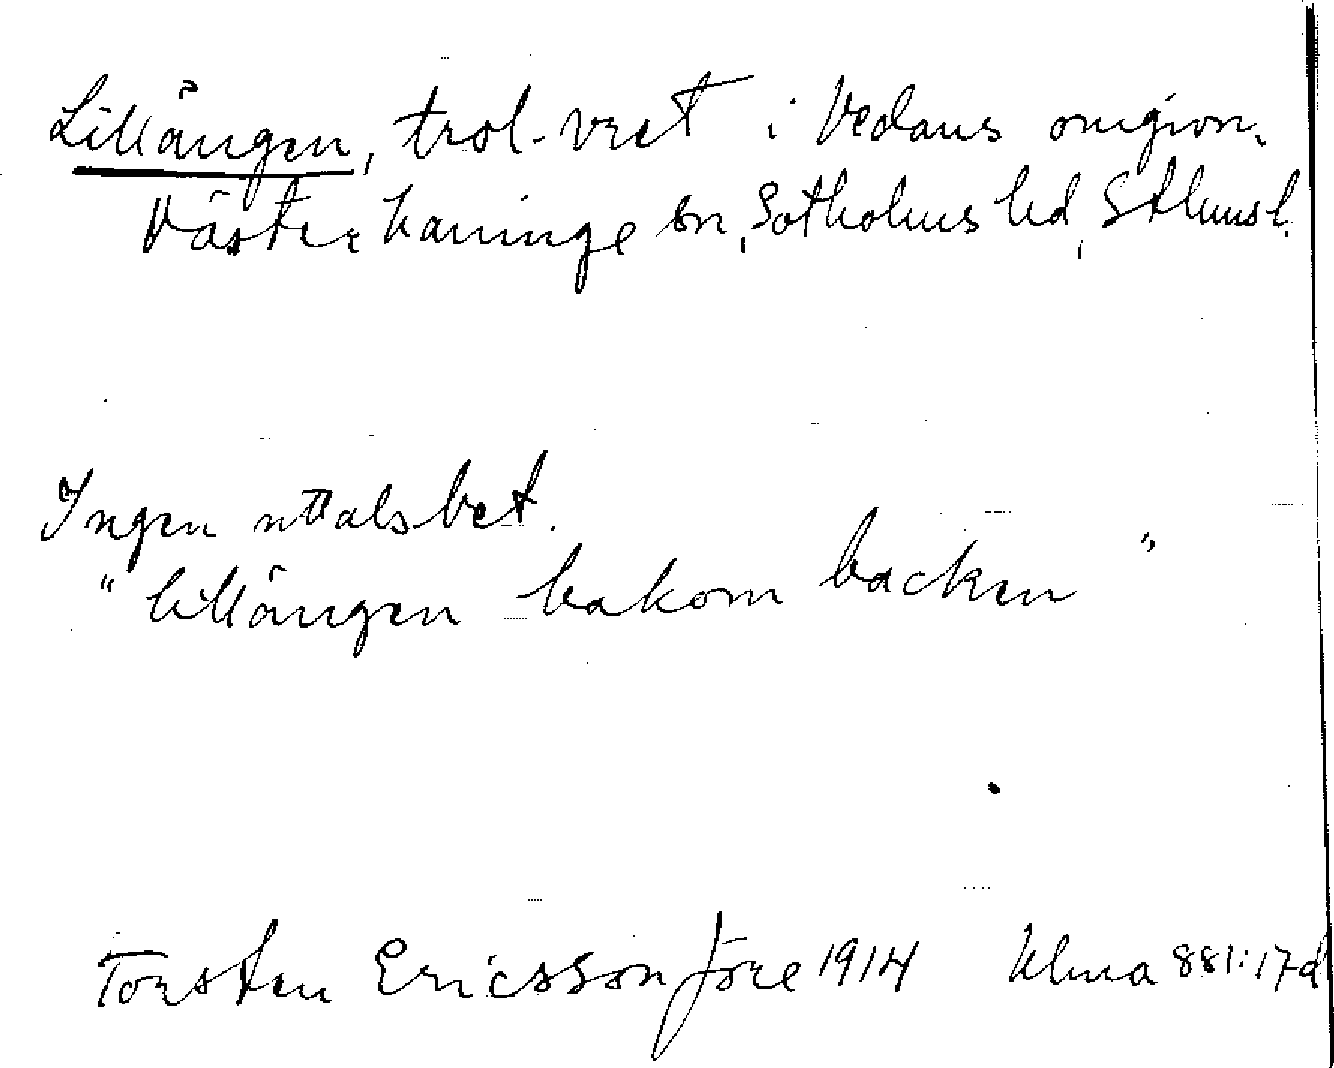 Lillängen, trol. vret i Vedans omgivn.
Västerhaninge sn, Sotholms hd, Sthms l.
Ingen uttalsbet.
"lillängen bakom backen"
Torsten Ericsson före 1914 Ulma 881:17d